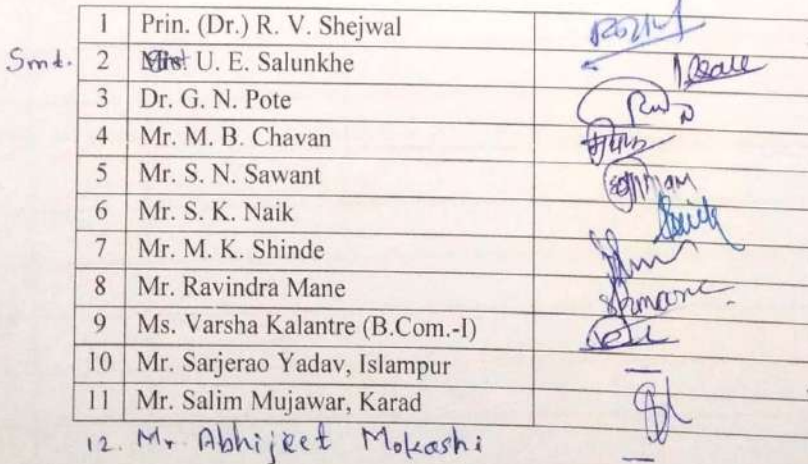 1 Prin. (Dr.) R. V. Shejwal
Smt. 2 U. E. Salunkhe
3 Dr. G. N. Pote
4 Mr. M. B. Chavan
5 Mr. S. N. Sawant
6 Mr. S. K. Naik
7 Mr. M. K. Shinde
8 Mr. Ravindra Mane
9 Ms. Varsha Kalantre (B.Com.-I)
10 Mr. Sarjerao Yadav, Islampur
11 Mr. Salim Mujawar, Karad
12. Mr. Abhijeet Mokashi